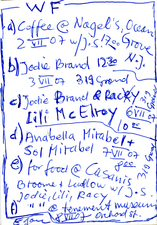 WF
a) Coffee @ Nagel's, Ocean
2 VII 07 w/ J.S. 1220 Grove
b) Jodie Brand 1230 N.J.
3 VII 07 319 Grand
c) Jodie Brand & Racy
Lili McElroy 6 VII 07
d) Anabella Mirabel +
Sol Mirabel 7 VII 07
e) for food @ Casanis
Broome + Ludlow w/ J.S.
Jodie, Lili, Racy
" " @ tenement museum
8 VII 07 orchard st.